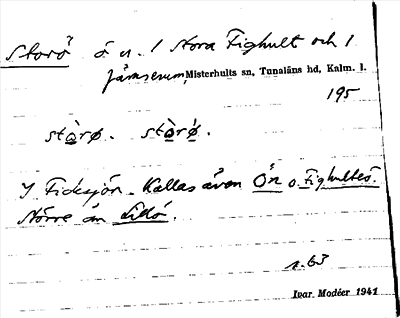 Storö ö n. / Stora Fighult och /
Jämserum, Misterhults sn, Tunaläns hd, Kalm. l.
195
stòrø. stòrǿ.
I Ficksjön. Kallas även Ön o. Fighultsö.
Större än Lillö.
s. 63
Ivar Modéer 1941